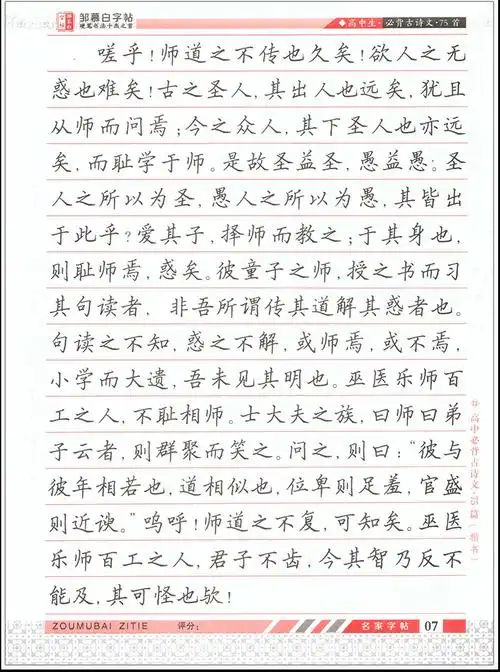 邹慕白字帖
硬笔书法十点之首
◆高中生·必背古诗文·75首
嗟乎!师道之不传也久矣!欲人之无
惑也难矣!古之圣人,其出人也远矣,犹且
从师而问焉;今之众人,其下圣人也亦远
矣,而耻学于师。是故圣益圣,愚益愚。圣
人之所以为圣,愚人之所以为愚,其皆出
于此乎?爱其子,择师而教之;于其身也,
则耻师焉,惑矣。彼童子之师,授之书而习
其句读者,非吾所谓传其道解其惑者也。
句读之不知,惑之不解,或师焉,或不焉,
小学而大遗,吾未见其明也。巫医乐师百
工之人,不耻相师。士大夫之族,曰师曰弟
子云者,则群聚而笑之。问之,则曰:“彼与
彼年相若也,道相似也,位卑则足羞,官盛
则近谀。”呜呼!师道之不复,可知矣。巫医
乐师百工之人,君子不齿,今其智乃反不
能及,其可怪也欤!
高中必背古诗文·75篇(楷书)
ZOUMUBAI ZITIE
评分:
名家字帖
07